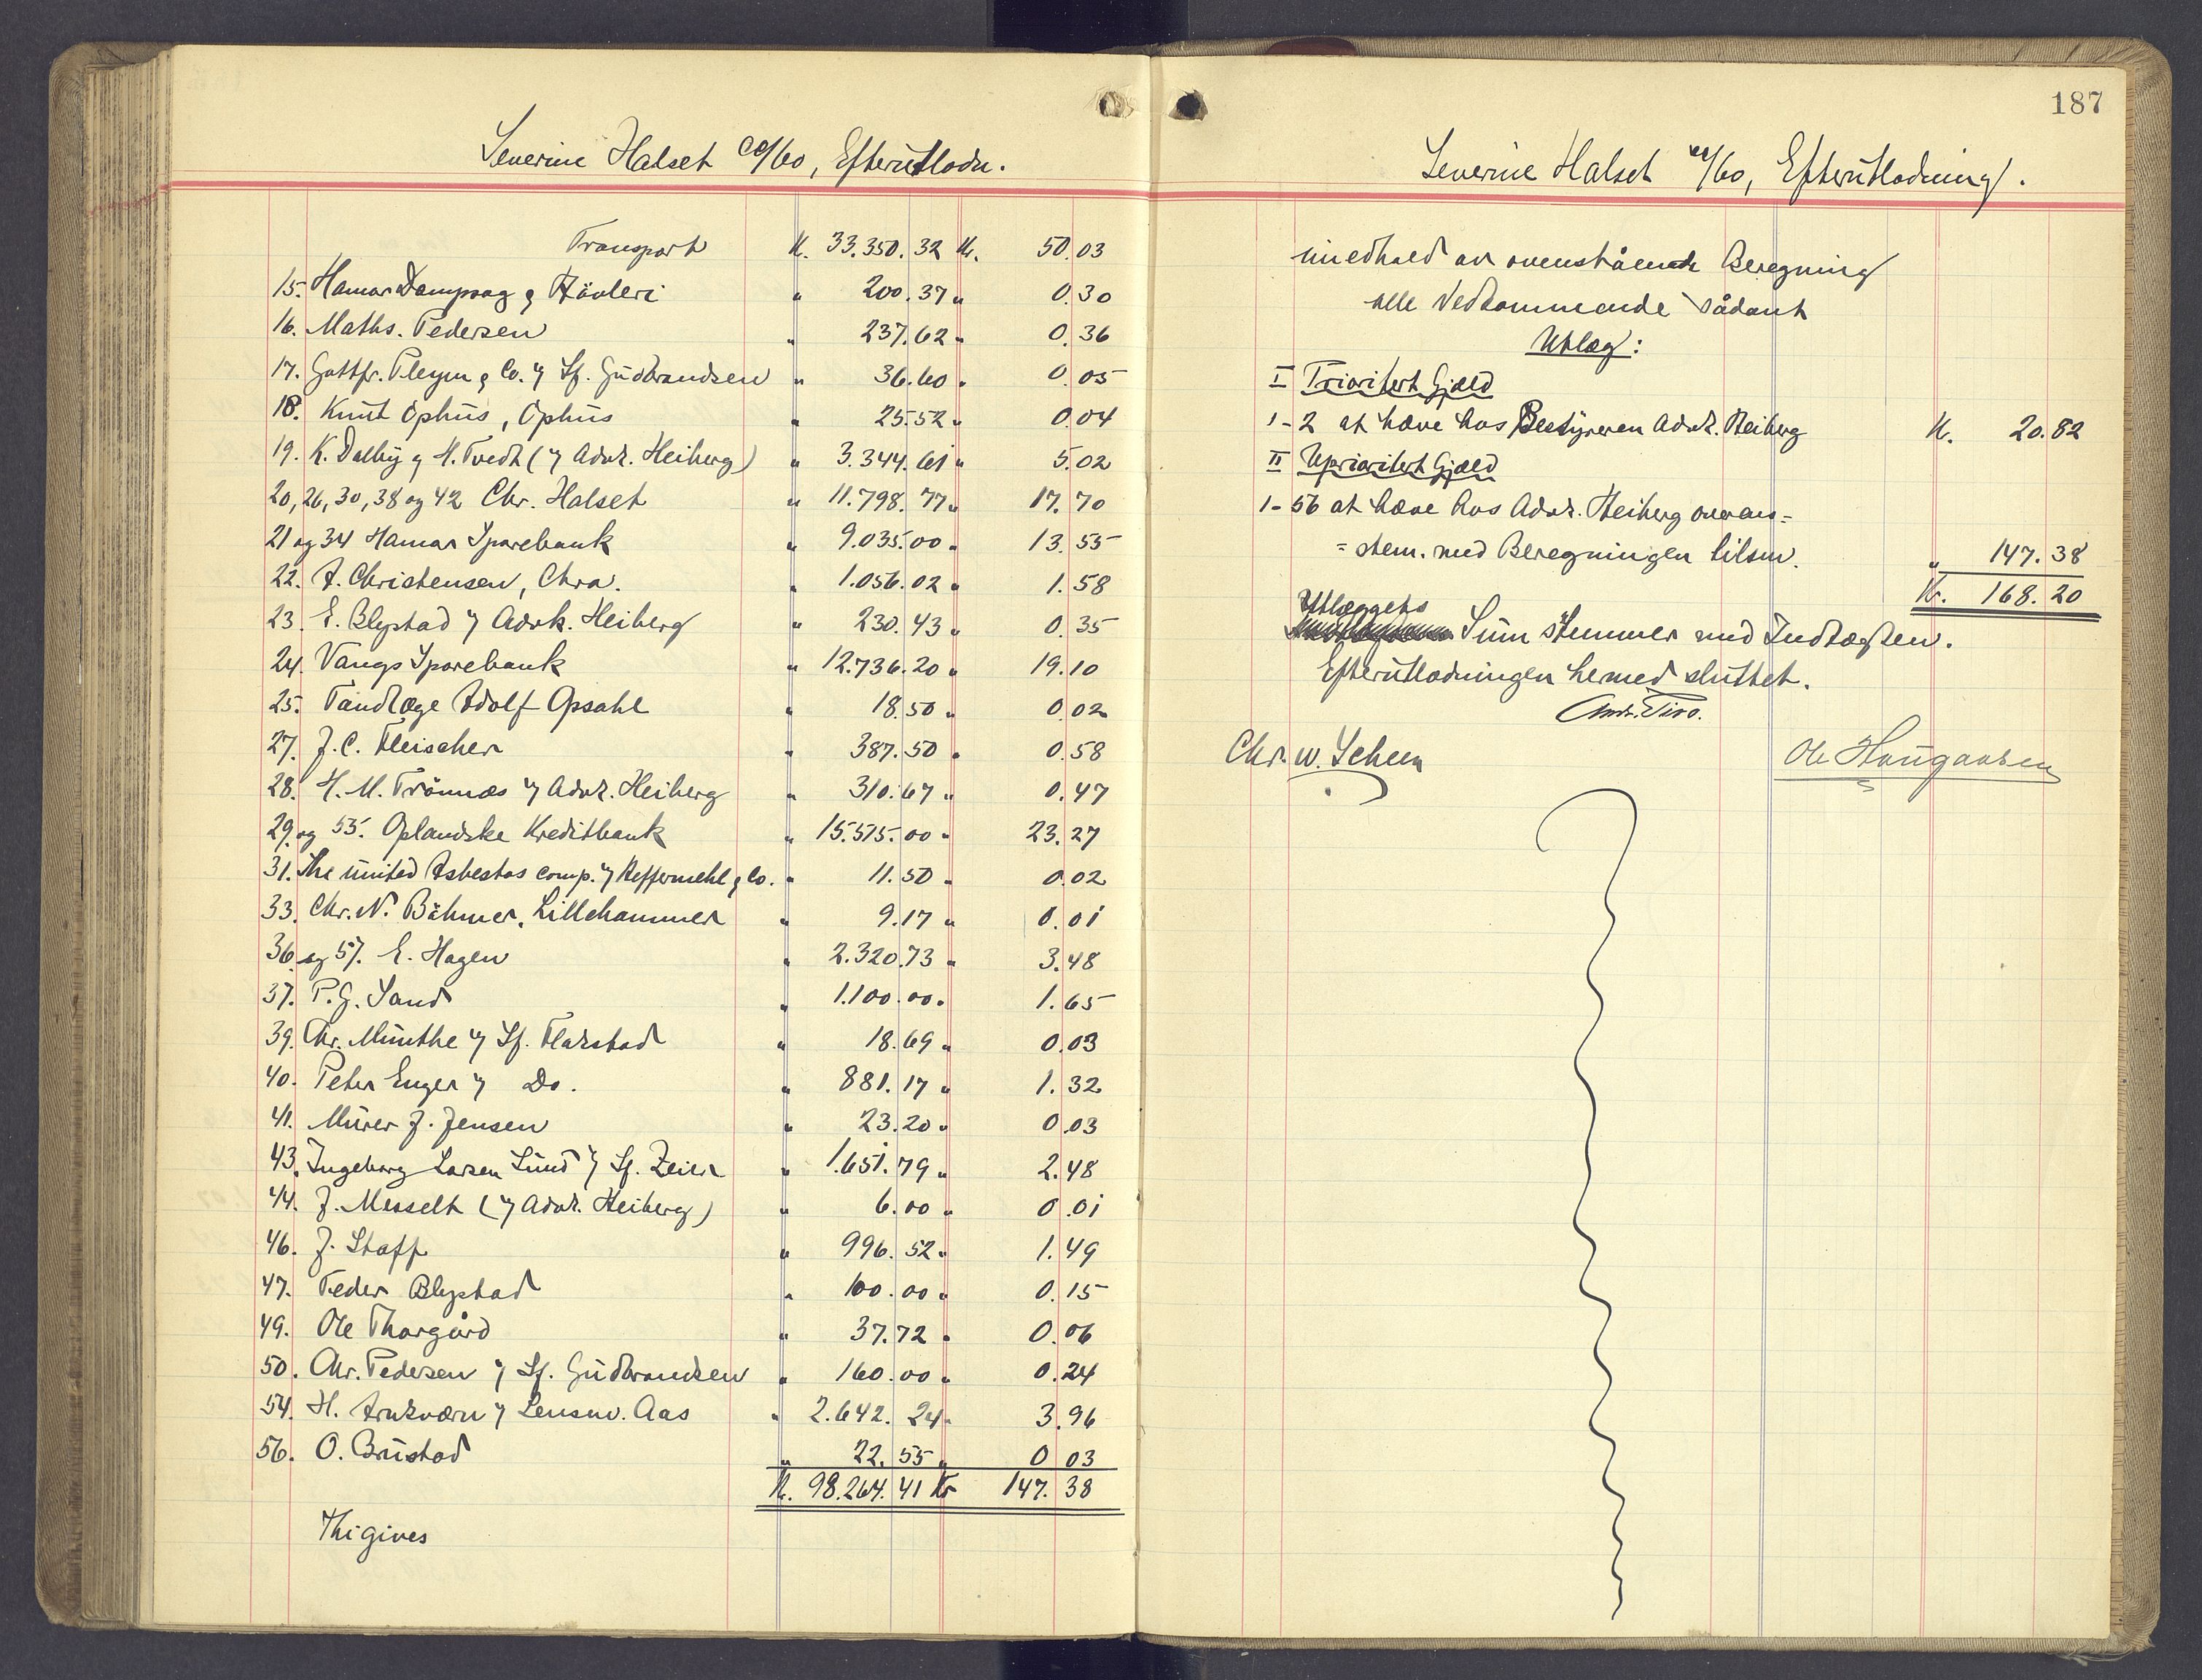 Severine Halset /60, Efterutlodn.
Transport Kr. 33.350.32 Kr. 50.03
15. Hamar Dampsag & Høvleri " 200.37 " 0.30
16. Maths. Pedersen " 237.62 " 0.36
17. Gottfr. & Co. v/ Sf. Gudbrandsen " 36.60 " 0.05
18. Knut Ophus, Ophus " 25.52 " 0.04
19. K. Dalby & H. Tvedt (v/ Advk. Heiberg) " 3.344.61 " 5.02
20, 26, 30, 38 og 42 Chr. Halset " 11.798.77 " 17.70
21 og 34 Hamar Sparebank " 9.035.00 " 13.55
22. A. Christensen, Chra. " 1.056.02 " 1.58
23. E. Blystad v/ Advk. Heiberg " 230.43 " 0.35
24. Vangs Sparebank " 12.736.20 " 19.10
25. Tandlæge Adolf Opsahl " 18.50 " 0.02
27. J.C. Fleischer " 387.50 " 0.58
28. H.M. Trønnæs v/ Advk. Heiberg " 310.67 " 0.47
29. og 55. Oplandske Kreditbank " 15.515.00 " 23.27
31. The united Asbestos comp. v/ Heffermehl & Co. " 11.50 " 0.02
33. Chr. N. Bøhmer, Lillehammer " 9.17 " 0.01
36 og 57. E. Hagen " 2.320.73 " 3.48
37. P.G. Sand " 1.100.00 " 1.65
39. Chr. Munthe v/ Sf. Flakstad " 18.69 " 0.03
40. Peter Enger v/ Do. " 881.17 " 1.32
41. Murer J. Jensen " 23.20 " 0.03
43. Ingeborg Larsen Lund v/ Sf. Zeier " 1.651.79 " 2.48
44. J. Messelt (v/ Advk. Heiberg) " 6.00 " 0.01
46. J. Staff " 996.52 " 1.49
47. Peder Blystad " 100.00 " 0.15
49. Ole Thorgård " 37.72 " 0.06
50. Chr. Pedersen v/ Sf. Gudbrandsen " 160.00 " 0.24
54. H. Arnkværn v/ Lensm. Aas " 2.642.24 " 3.96
56. O. Brustad " 22.55 " 0 03
Kr. 98.264.41 Kr 147.38
Thi gives
187
Severine Halset /60, Efterutlodning.
imedhold av ovenstående Beregning
alle Vedkommende sådant
Utlæg:
I Prioritert Gjæld
1-2 at hæve hos Bestyreren Advk. Heiberg Kr. 20.82
II Uprioritert Gjæld
1-56 at hæve hos Advk. Heiberg overens=
=stem. med Beregningen tilsm. " 147.38
Kr. 168.20
Utlæggets
Sum stemmer med Indtægten.
Efterutlodningen hermed sluttet.
Chr. W. Scheen Ole Haugaasen